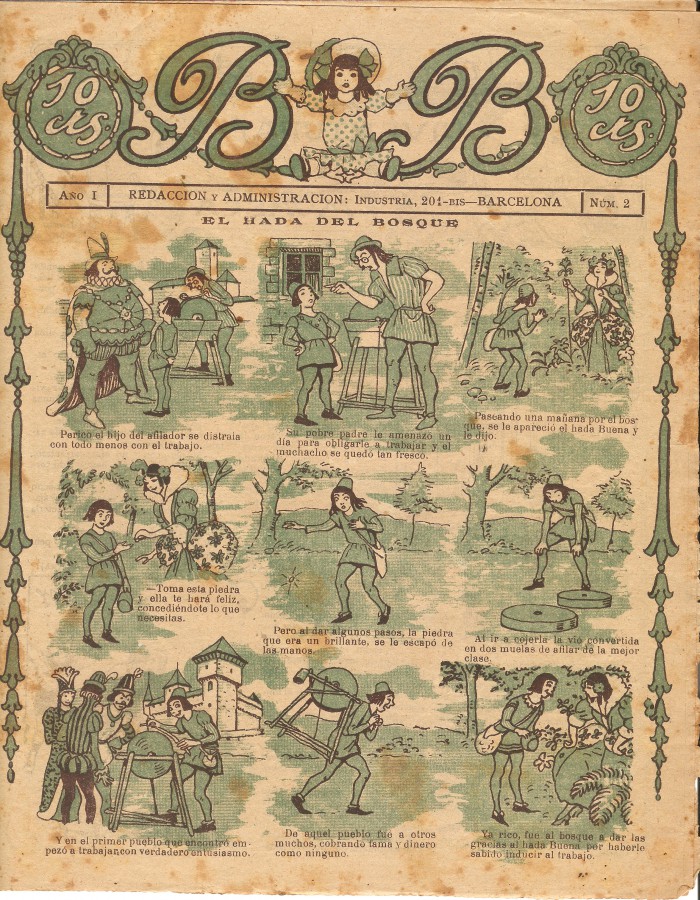 10 cts.
BB
10 cts.
AÑO I
REDACCION Y ADMINISTRACION: INDUSTRIA, 201-BIS—BARCELONA
NÚM. 2
EL HADA DEL BOSQUE
Perico el hijo del afilador se distraia
con todo menos con el trabajo.
Su pobre padre le amenazó un
dia para obligarle a trabajar y el
muchacho se quedó tan fresco.
Paseando una mañana por el bos-
que, se le apareció el hada Buena y
le dijo.
—Toma esta piedra
y ella te hará feliz,
concediéndote lo que
necesitas.
Pero al dar algunos pasos, la piedra
que era un brillante, se le escapó de
las manos.
Al ir a cojerla la vió convertida
en dos muelas de afilar de la mejor
clase.
Y en el primer pueblo que encontró em-
pezó a trabajar, con verdadero entusiasmo.
De aquel pueblo fue a otros
muchos, cobrando fama y dinero
como ninguno.
Ya rico, fue al bosque a dar las
gracias al hada Buena por haberle
sabido inducir al trabajo.